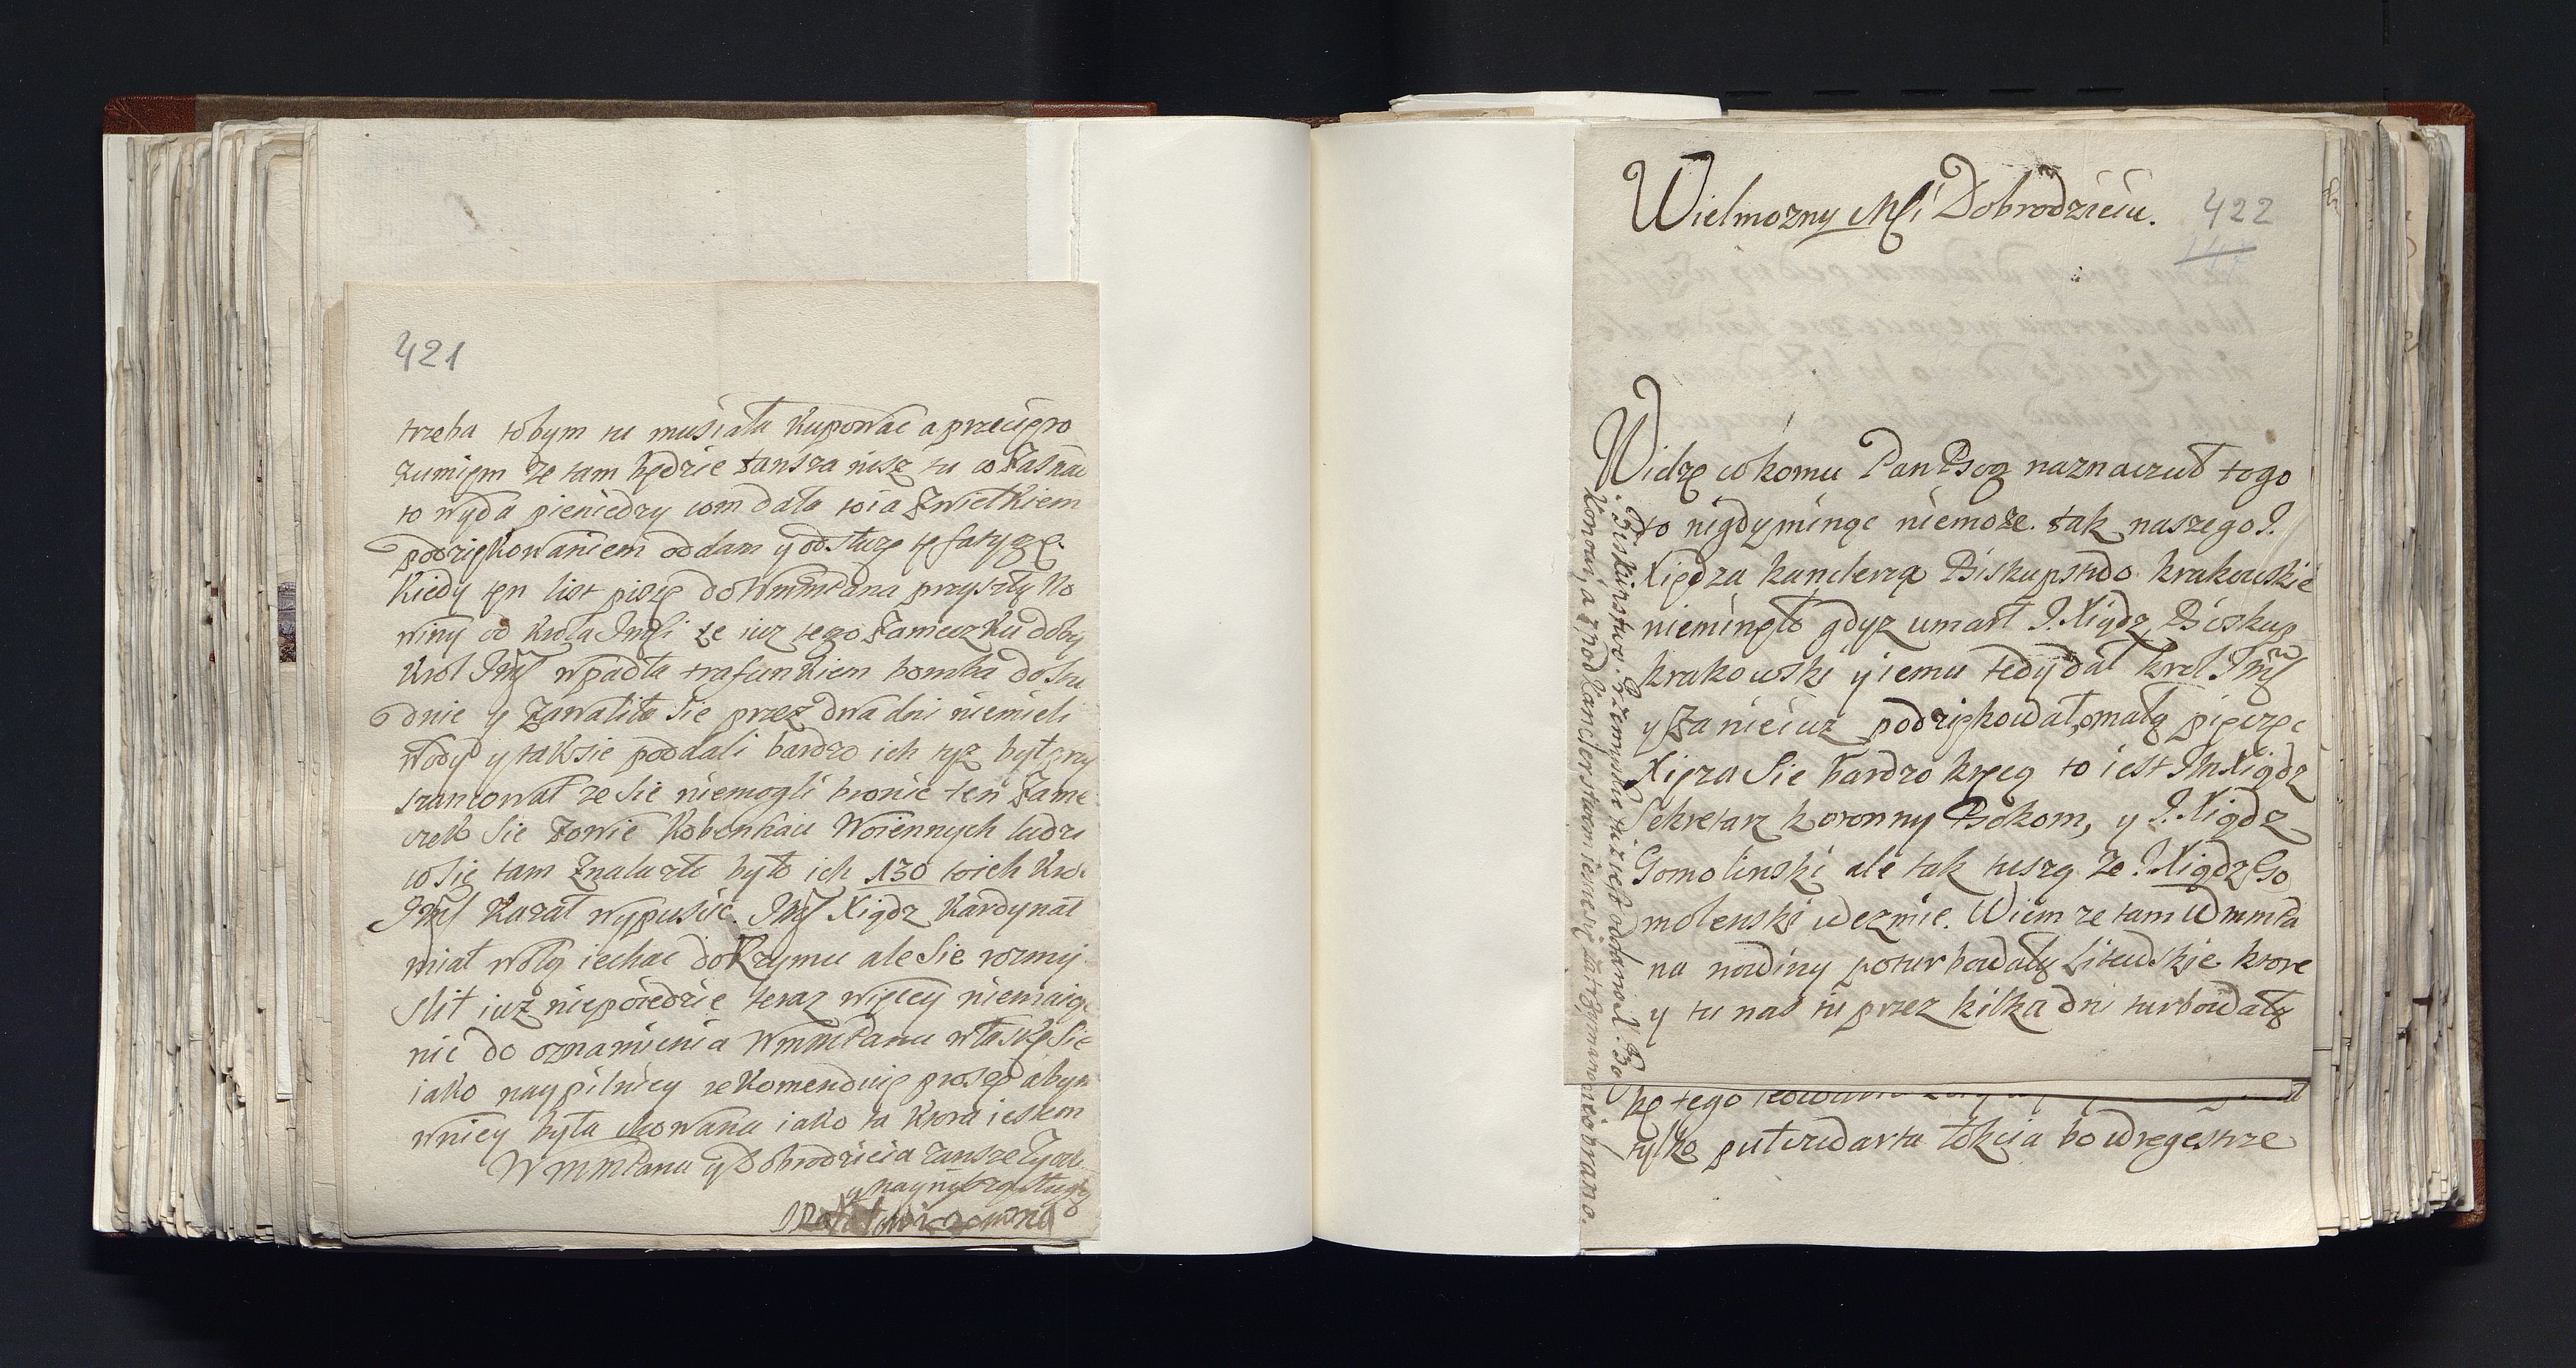 421
trzeba tobym tu musiała kupowac a przecięro
zumięm ze tam będzie tansza nisz tu co Jasnac
to wyda pieniedzy com dała to ia Zwielkiem
podziękowaniem oddam y od służę tę fatygę.
Kiedy tęn list piszę do WmmPana przyszły No
winy od Krola Jmsi ze iuz tego Zameczku doby
Krol Jmsc wpadła trafunkiem bomba do stu
dnie y Zawaliło Sie przez dwa dni niemieli
wody y tak sie poddali bardzo ich tyz był przy
szancował ze Sie niemogli bronic ten Zame
czek Sie Zowie Kobenhau Woiennych ludzi
co Się tam Znalazło było ich 130 to ich Kro
Jmsc Kazał wypuscic. Jmsc Xiądz Kardynał
miał wolą iechac do Rzymu ale Sie rozmy
slił iuz niepoiedzie teraz więcey niemaiąc
nic do oznamienia WmmPanu właskę Sie
iako naypilniey rekomenduię proszę abym
wniey była chowana iako ta ktora iestem
WmmPana y Dobrodzieia Zansze Zycz
y nayniszą sługą
422
Wielmozny Msi Dobrodzieiu.
Widzę co komu Pan Bog naznaczył tego
to nigdy minąc niemoze. tak naszego J.
Xiędza kanclerza Biskupstwo krakowskie
nieminęło gdyz umarł J. Xiądz Biskup
krakowski y iemu tedy dał krol Jmsc
y Za nie iuz podziękował, o małą pieczęc
Xięza Sie bardzo kręcą to iest Jm Xiądz
Sekretarz koronny Bokom, y J. Xiądz
Gomolinski ale tak tuszą Ze J. Xiądz Go
molenski wezmie. Wiem ze tam WmmPa
na nowiny poturbowały Litewskie ktore
y tu nas tu przez kilka dni turbowały
kę tego
tylko puł czwarta łokcia bo w regestrze
Biskupstwo Przemyskie tu iest oddano X. Bo